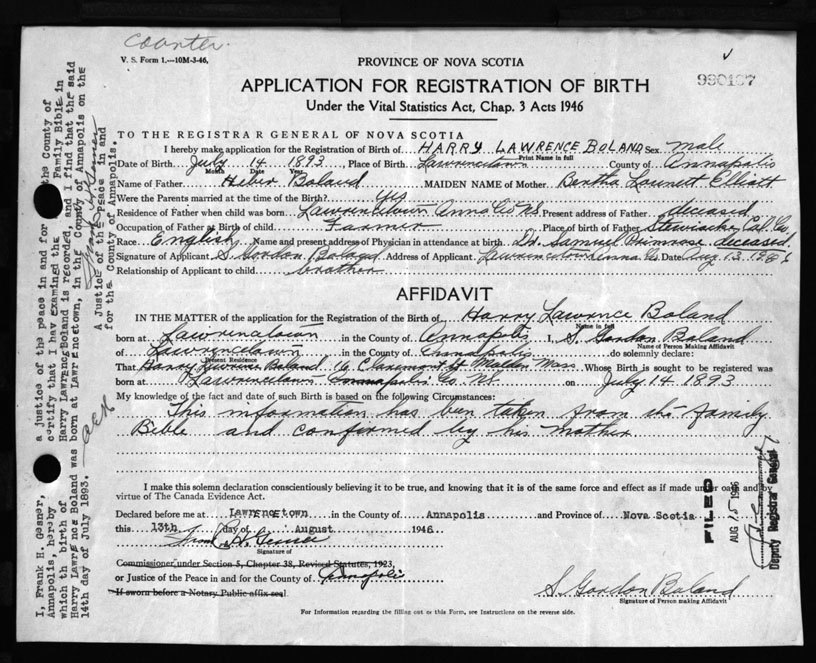 counter.
V. S. Form 1.—10M-3-46.
PROVINCE OF NOVA SCOTIA
990107
APPLICATION FOR REGISTRATION OF BIRTH
Under the Vital Statistics Act, Chap. 3 Acts 1946
TO THE REGISTRAR GENERAL OF NOVA SCOTIA
I hereby make application for the Registration of Birth of HARRY LAWRENCE BOLAND Sex male
Print Name in full
Date of Birth July 14 1893, Place of Birth Lawrencetown County of Annapolis
Month Date Year
Name of Father Heber Boland MAIDEN NAME of Mother Bertha Elliott
Were the Parents married at the time of the Birth? yes
Residence of Father when child was born Lawrencetown Anna Co NS. Present address of Father deceased
Occupation of Father at Birth of child Farmer Place of birth of Father Stewiacke Col. Co.
Race English Name and present address of Physician in attendance at birth Dr. Samuel Primrose deceased
Signature of Applicant S. Gordon Boland Address of Applicant Lawrencetown Anna Co. Date Aug 13, 1946
Relationship of Applicant to child brother
AFFIDAVIT
IN THE MATTER of the application for the Registration of the Birth of Harry Lawrence Boland
Name in full
born at Lawrencetown in the County of Annapolis I, S. Gordon Boland
Name of Person Making Affidavit
of Lawrencetown in the County of Annapolis do solemnly declare:
Present Residence
That Harry Lawrence Boland 6 Claremont St Malden Mass. Whose Birth is sought to be registered was
born at Lawrencetown Annapolis Co. NS. on July 14 1893
My knowledge of the fact and date of such Birth is based on the following Circumstances:
This information has been taken from the family
Bible and confirmed by his mother
I make this solemn declaration conscientiously believing it to be true, and knowing that it is of the same force and effect as if made under oath and by
virtue of The Canada Evidence Act.
Declared before me at Lawrencetown in the County of Annapolis and Province of Nova Scotia
this 13th day of August 1946
Frank H. Gesner
Signature of
Commissioner under Section 5, Chapter 38, Revised Statutes, 1923,
or Justice of the Peace in and for the County of Annapolis
If sworn before a Notary Public affix seal
S. Gordon Boland
Signature of Person making Affidavit
For Information regarding the filling out of this Form, see Instructions on the reverse side.
I, Frank H. Gesner, a justice of the peace in and for the County of
Annapolis, hereby certify that I hav examined the Family Bible in
which th birth of Harry Lawrence Boland is recorded, and I find that the said
Harry Lawrence Boland was born at Lawrencetown, in the County of Annapolis on the
14th day of July 1893.
Frank H Gesner
A Justice of the Peace in and
for the County of Annapolis.
FILED
AUG 15 1946
Deputy Registrar General